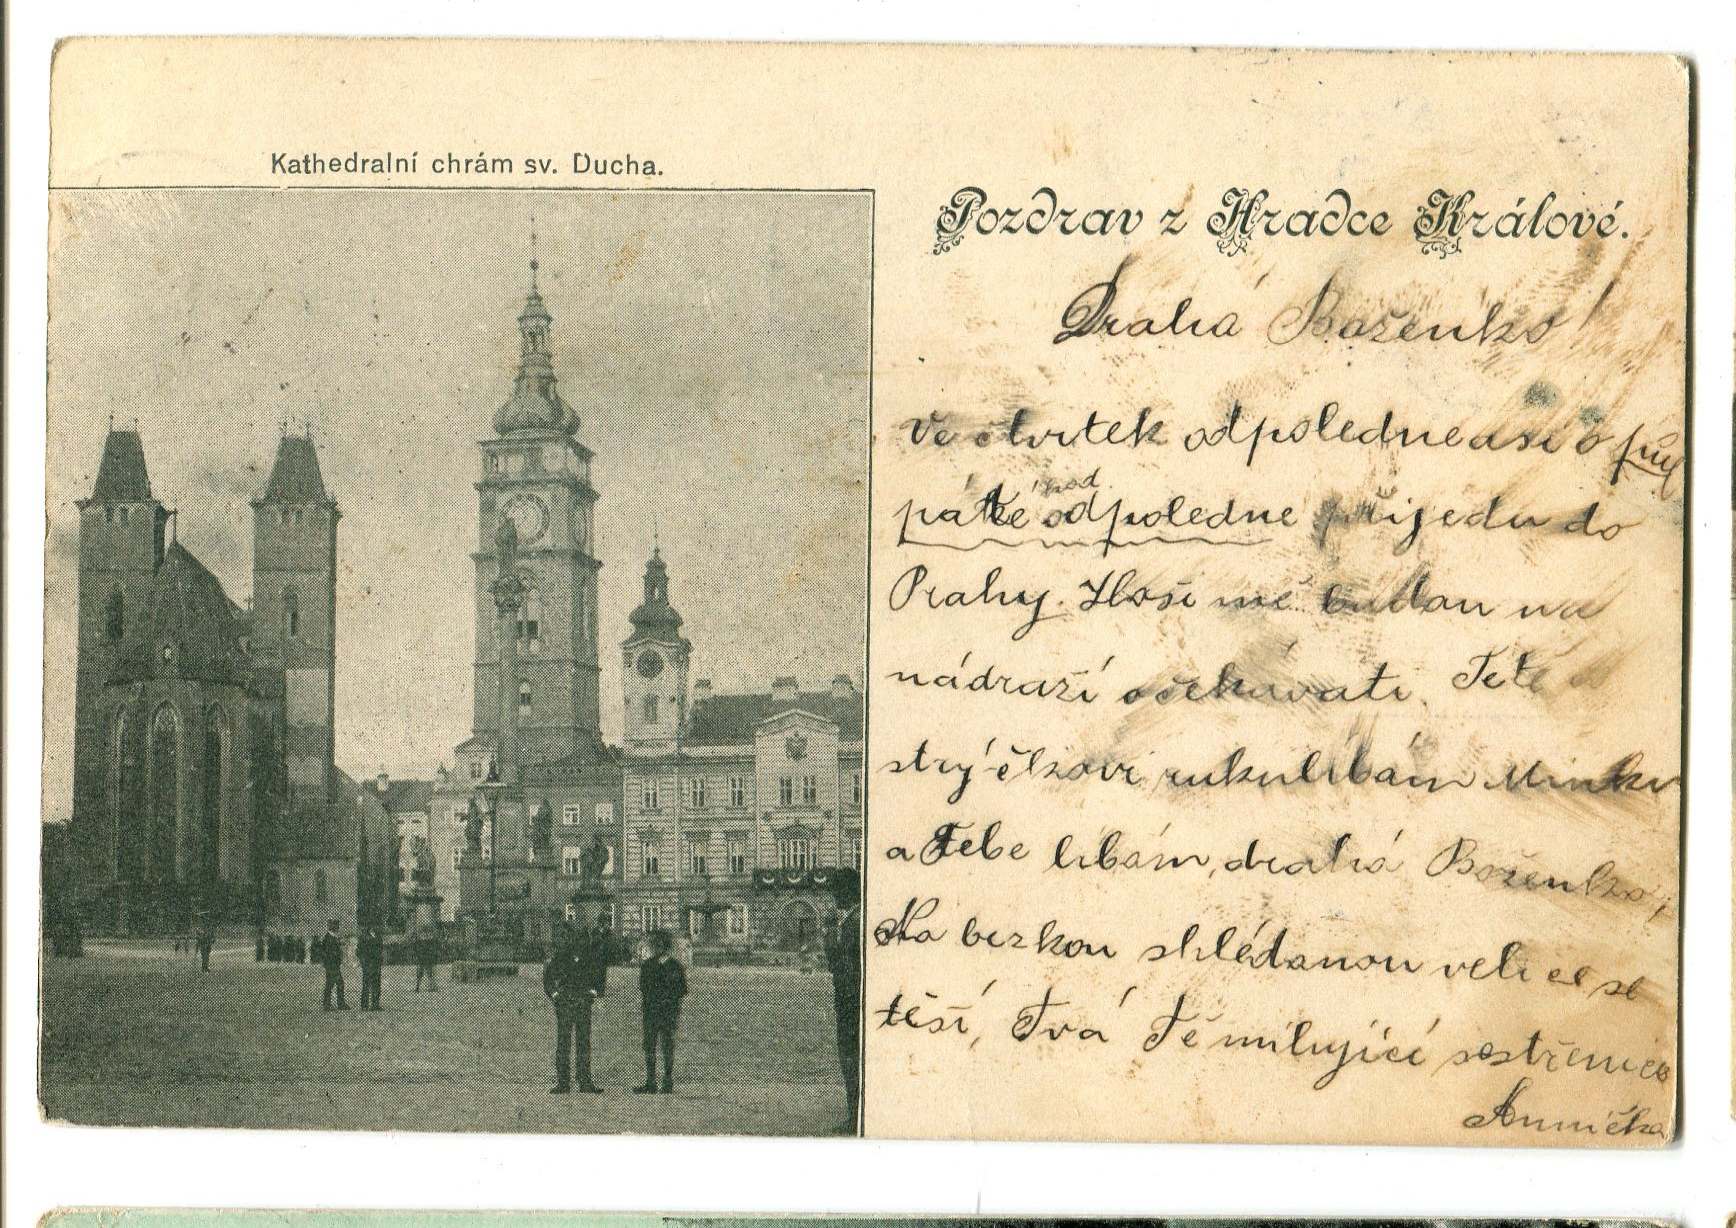 Kathedralní chrám sv. Ducha.
Pozdrav z Hradce Králové.
Drahá Boženko!
Ve čtvrtek odpoledne asi o půl
páté hod. odpoledne přijedu do
Prahy. Hoši mě budou na
nádraží očekávati. Tetě a
strýčkovi rukulíbám Minku
a Tebe líbám, drahá Boženko,
Na brzkou shledanou velice se
těší, Tvá Tě milující sestřenice
Annička